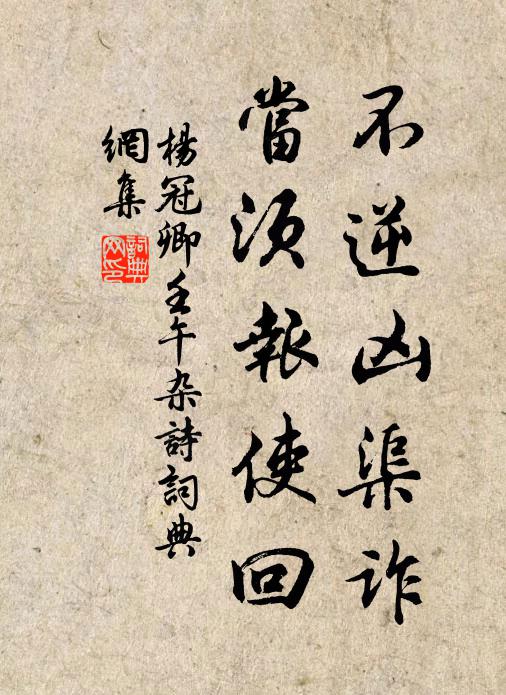 不逆凶渠詐
當須報使回
楊冠卿壬午杂詩詞典
網集
詞典
网印